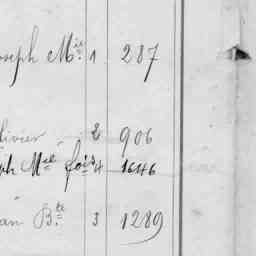 oseph M.ie 1 287
livier 2 906
ph M.el fois 4 1646
an B.te 3 1289